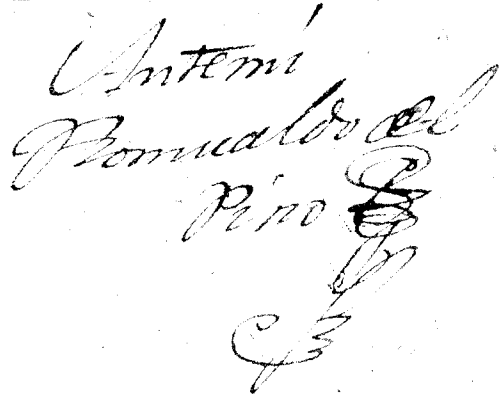 Antemi
Romualdo del
Pino